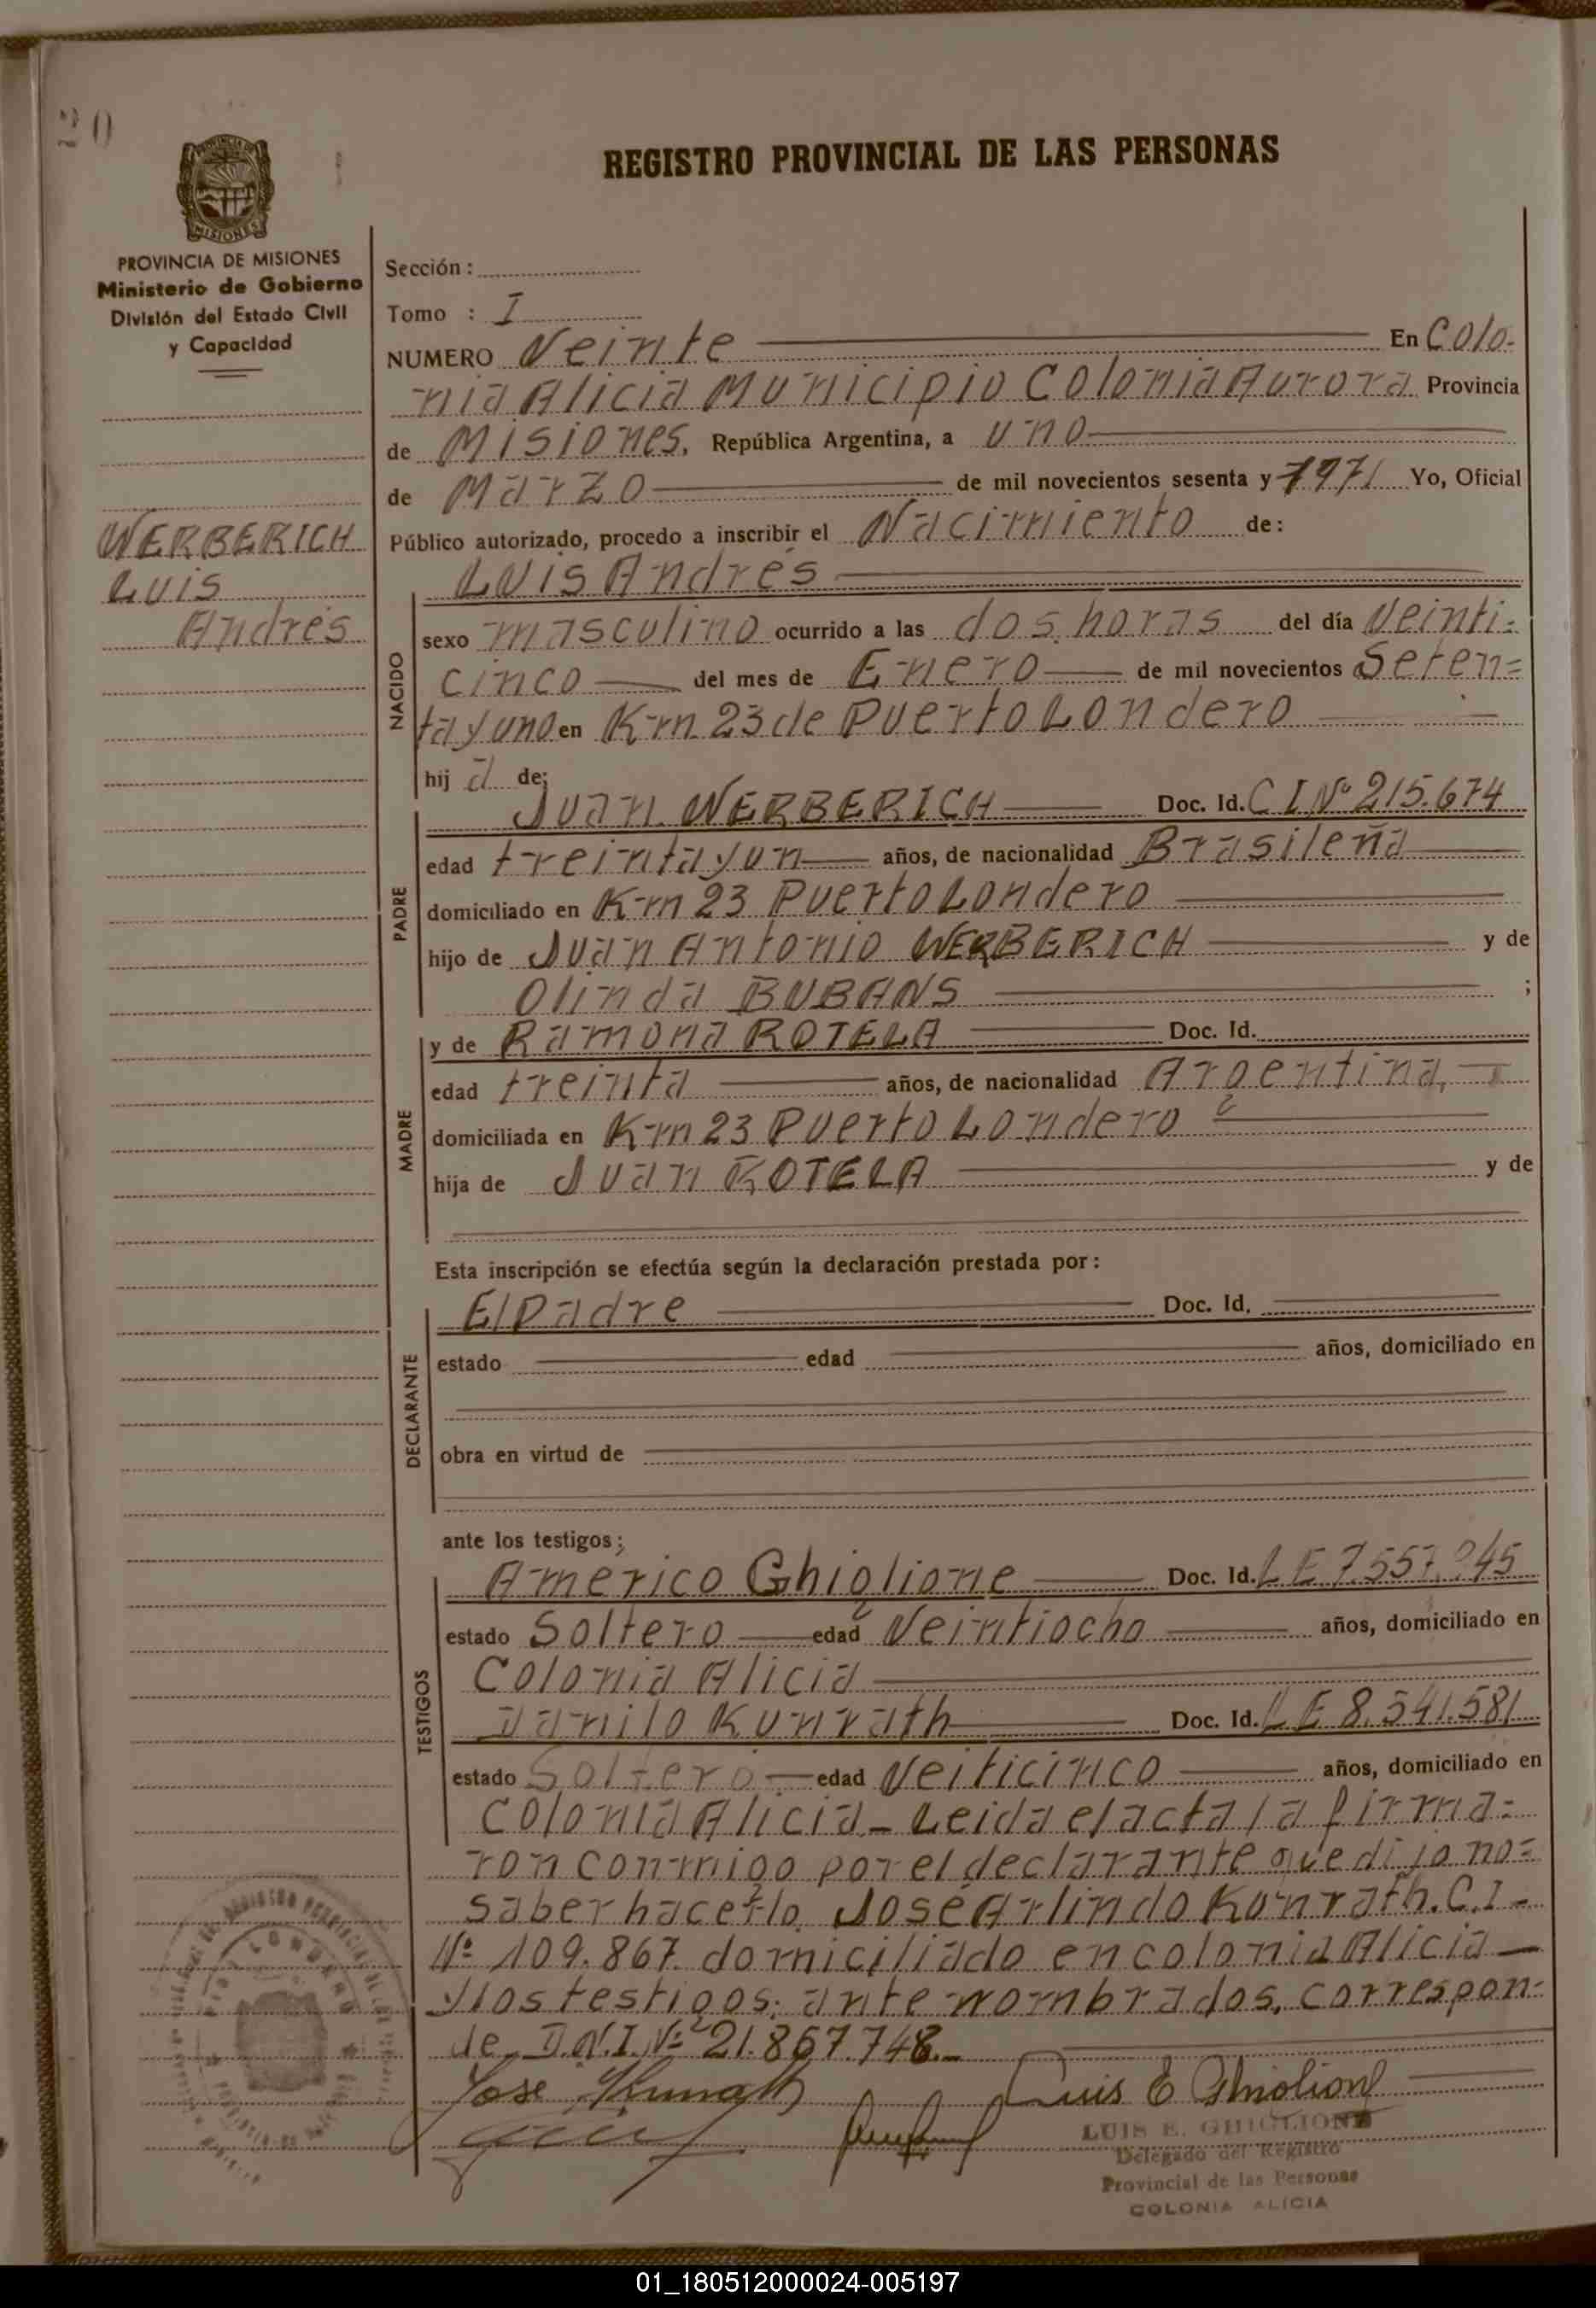 20
REGISTRO PROVINCIAL DE LAS PERSONAS
MISIONES
PROVINCIA DE MISIONES
Ministerio de Gobierno
División del Estado Civil
y Capacidad
WERBERICH
Luis
Andrés
Sección :
Tomo : I
NUMERO Veinte En Colo-
nia Alicia Municipio Colonia Aurora Provincia
de Misiones, República Argentina, a uno
de Marzo de mil novecientos sesenta y 1971 Yo, Oficial
Público autorizado, procedo a inscribir el Nacimiento de:
Luis Andrés
NACIDO
sexo masculino ocurrido a las dos horas del día Veinti-
cinco del mes de Enero de mil novecientos Seten=
ta y uno en Km 23 de Puerto Londero
hij a de;
PADRE
Juan WERBERICH Doc. Id. C I Nº 215.674
edad treinta y un años, de nacionalidad Brasileña
domiciliado en Km 23 Puerto Londero
hijo de Juan Antonio WERBERICH y de
Olinda BUBANS ;
MADRE
y de Ramona ROTELA Doc. Id.
edad treinta años, de nacionalidad Argentina,
domiciliada en Km 23 Puerto Londero
hija de Juan ROTELA y de
Esta inscripción se efectúa según la declaración prestada por :
DECLARANTE
El Padre Doc. Id.
estado edad años, domiciliado en
obra en virtud de
ante los testigos ;
TESTIGOS
Americo Ghiglione Doc. Id. L E 7.557.945
estado Soltero edad Veintiocho años, domiciliado en
Colonia Alicia
Danilo Kunrath Doc. Id. L E 8.341.581
estado Soltero edad Veiticinco años, domiciliado en
Colonia Alicia - Leida el acta la firma=
ron conmigo por el declarante que dijo no=
saber hacerlo José Arlindo Konrath. C.I-
Nº 109.867 domiciliado en colonia Alicia
y los testigos ante nombrados, correspon=
de D.N.I. Nº 21.857.748.-
Jose Kunrath
Luis E Ghiglione
LUIS E. GHIGLIONE
Delegado del Registro
Provincial de las Personas
COLONIA ALICIA
01_180512000024-005197